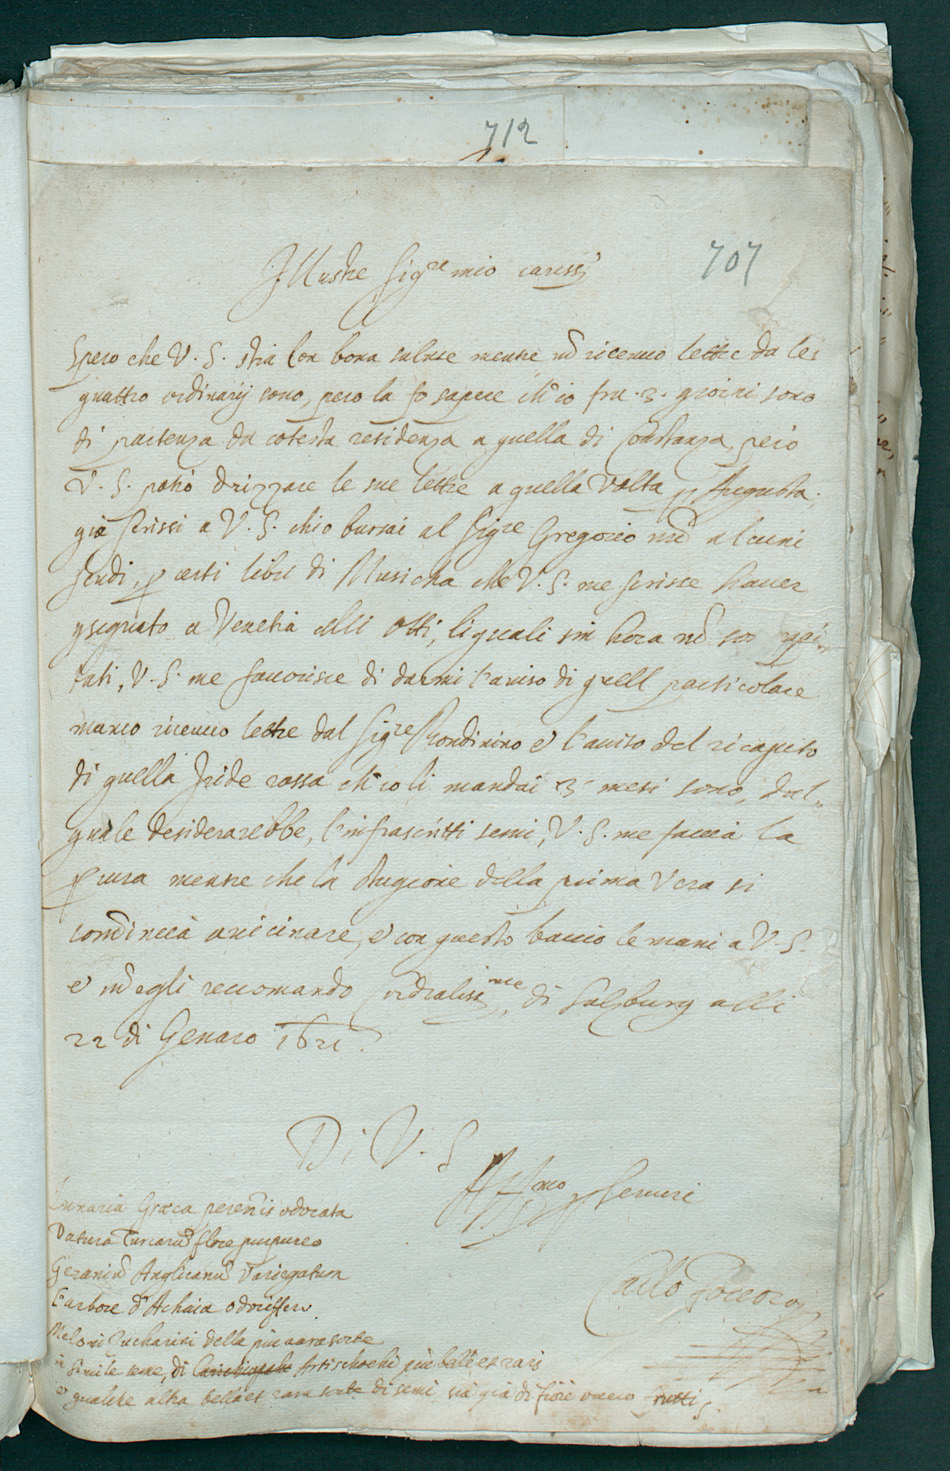 712
707
Illustre Sig.re mio cariss.
Spero che V. S. stia con bona salute mentre nõ riceuuo lettre da lei
quattro ordinarij sono, pero la fo sapere ch'io fra .3. giorni sono
di partenza da cotesta residenza a quella di Constanza, pero
V. S. potrò drizzare le sue lettre a quella Volta p Augusta.
già scrissi a V. S. chio bursai al Sig.re Gregorio alcuni
scudi, p certi libri di Musicha che V. S. me scrisse hauer
gsegnato a Venetia alli Otti, li quali sin hora nõ son
tati, V. S. me fauorisce di darmi l'auiso di quell particolare
manco riceuuo lettre dal Sig.re Rondinino e l'auiso del ricapito
di quella Iride rossa ch'io li mandai 3 mesi sono, dal
quale desiderarebbe, l'infrascritti semi, V. S. me faccia la
p cura mentre che la stagione della prima Vera si
comĩncia auicinare, e con questo baccio le mani a V. S.
e mẽ gli reccomando cordialiss.mte, di Salzburg alli
22 di Genaro 1621.
Di V. S.
Aff.mo p Seruire
Carlo
Lunaria Græca perennis odorata
Datura Turcarũ flore purpureo
Geraniũ Anglicanũ Variegatum
L'arbore d'Achaia odorifero
Meloni Zucharini della piu rara sorte
in simile seme, di Artischochi piu belli et rari
e qualche altra bella et rara sorte di semi sia già di fiori ouero frutti